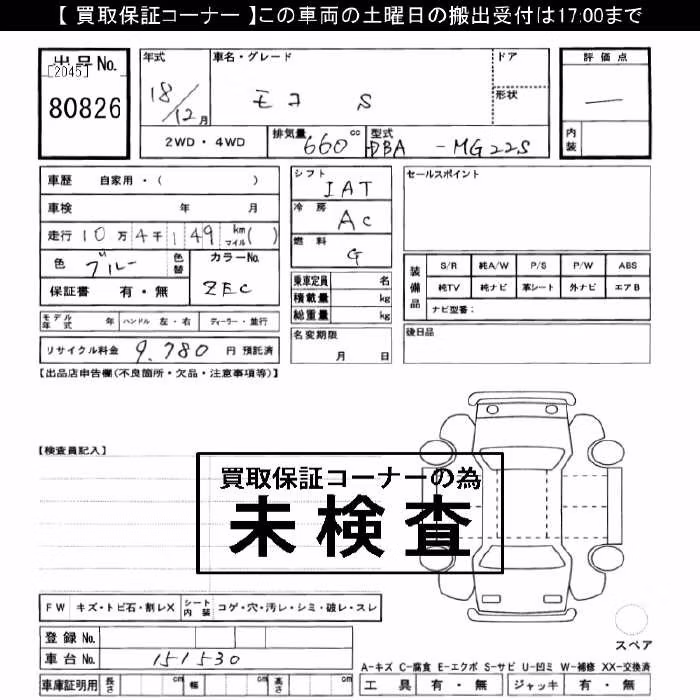 【 買取保証コーナー 】この車両の土曜日の搬出受付は17:00まで
出品No.
[2045]
80826
年式
18/12月
車名・グレード
モコ S
ドア
形状
評価点
—
内装
2WD・4WD
排気量 660 cc
型式 DBA - MG22S
車歴 自家用・( )
車検 年 月
走行 10万4千149 km マイル( )
色 ブルー 色替
カラーNo. ZEC
保証書 有・無
シフト IAT
冷房 AC
燃料 G
乗車定員 名
積載量 kg
総重量 kg
セールスポイント
装備品
S/R 純A/W P/S P/W ABS
純TV 純ナビ 革シート 外ナビ エアB
ナビ型番:
モデル年式 年 ハンドル 左・右 ディーラー・並行
名変期限 月 日
後日品
リサイクル料金 9,780 円 預託済
【出品店申告欄(不良箇所・欠品・注意事項等)】
【検査員記入】
買取保証コーナーの為
未検査
FW キズ・トビ石・割レX シート内装 コゲ・穴・汚レ・シミ・破レ・スレ
登録No.
車台No. 151530
スペア
車庫証明用 長さ cm 幅 cm 高さ cm
A-キズ C-腐食 E-エクボ S-サビ U-凹ミ W-補修 XX-交換済
工具 有・無 ジャッキ 有・無